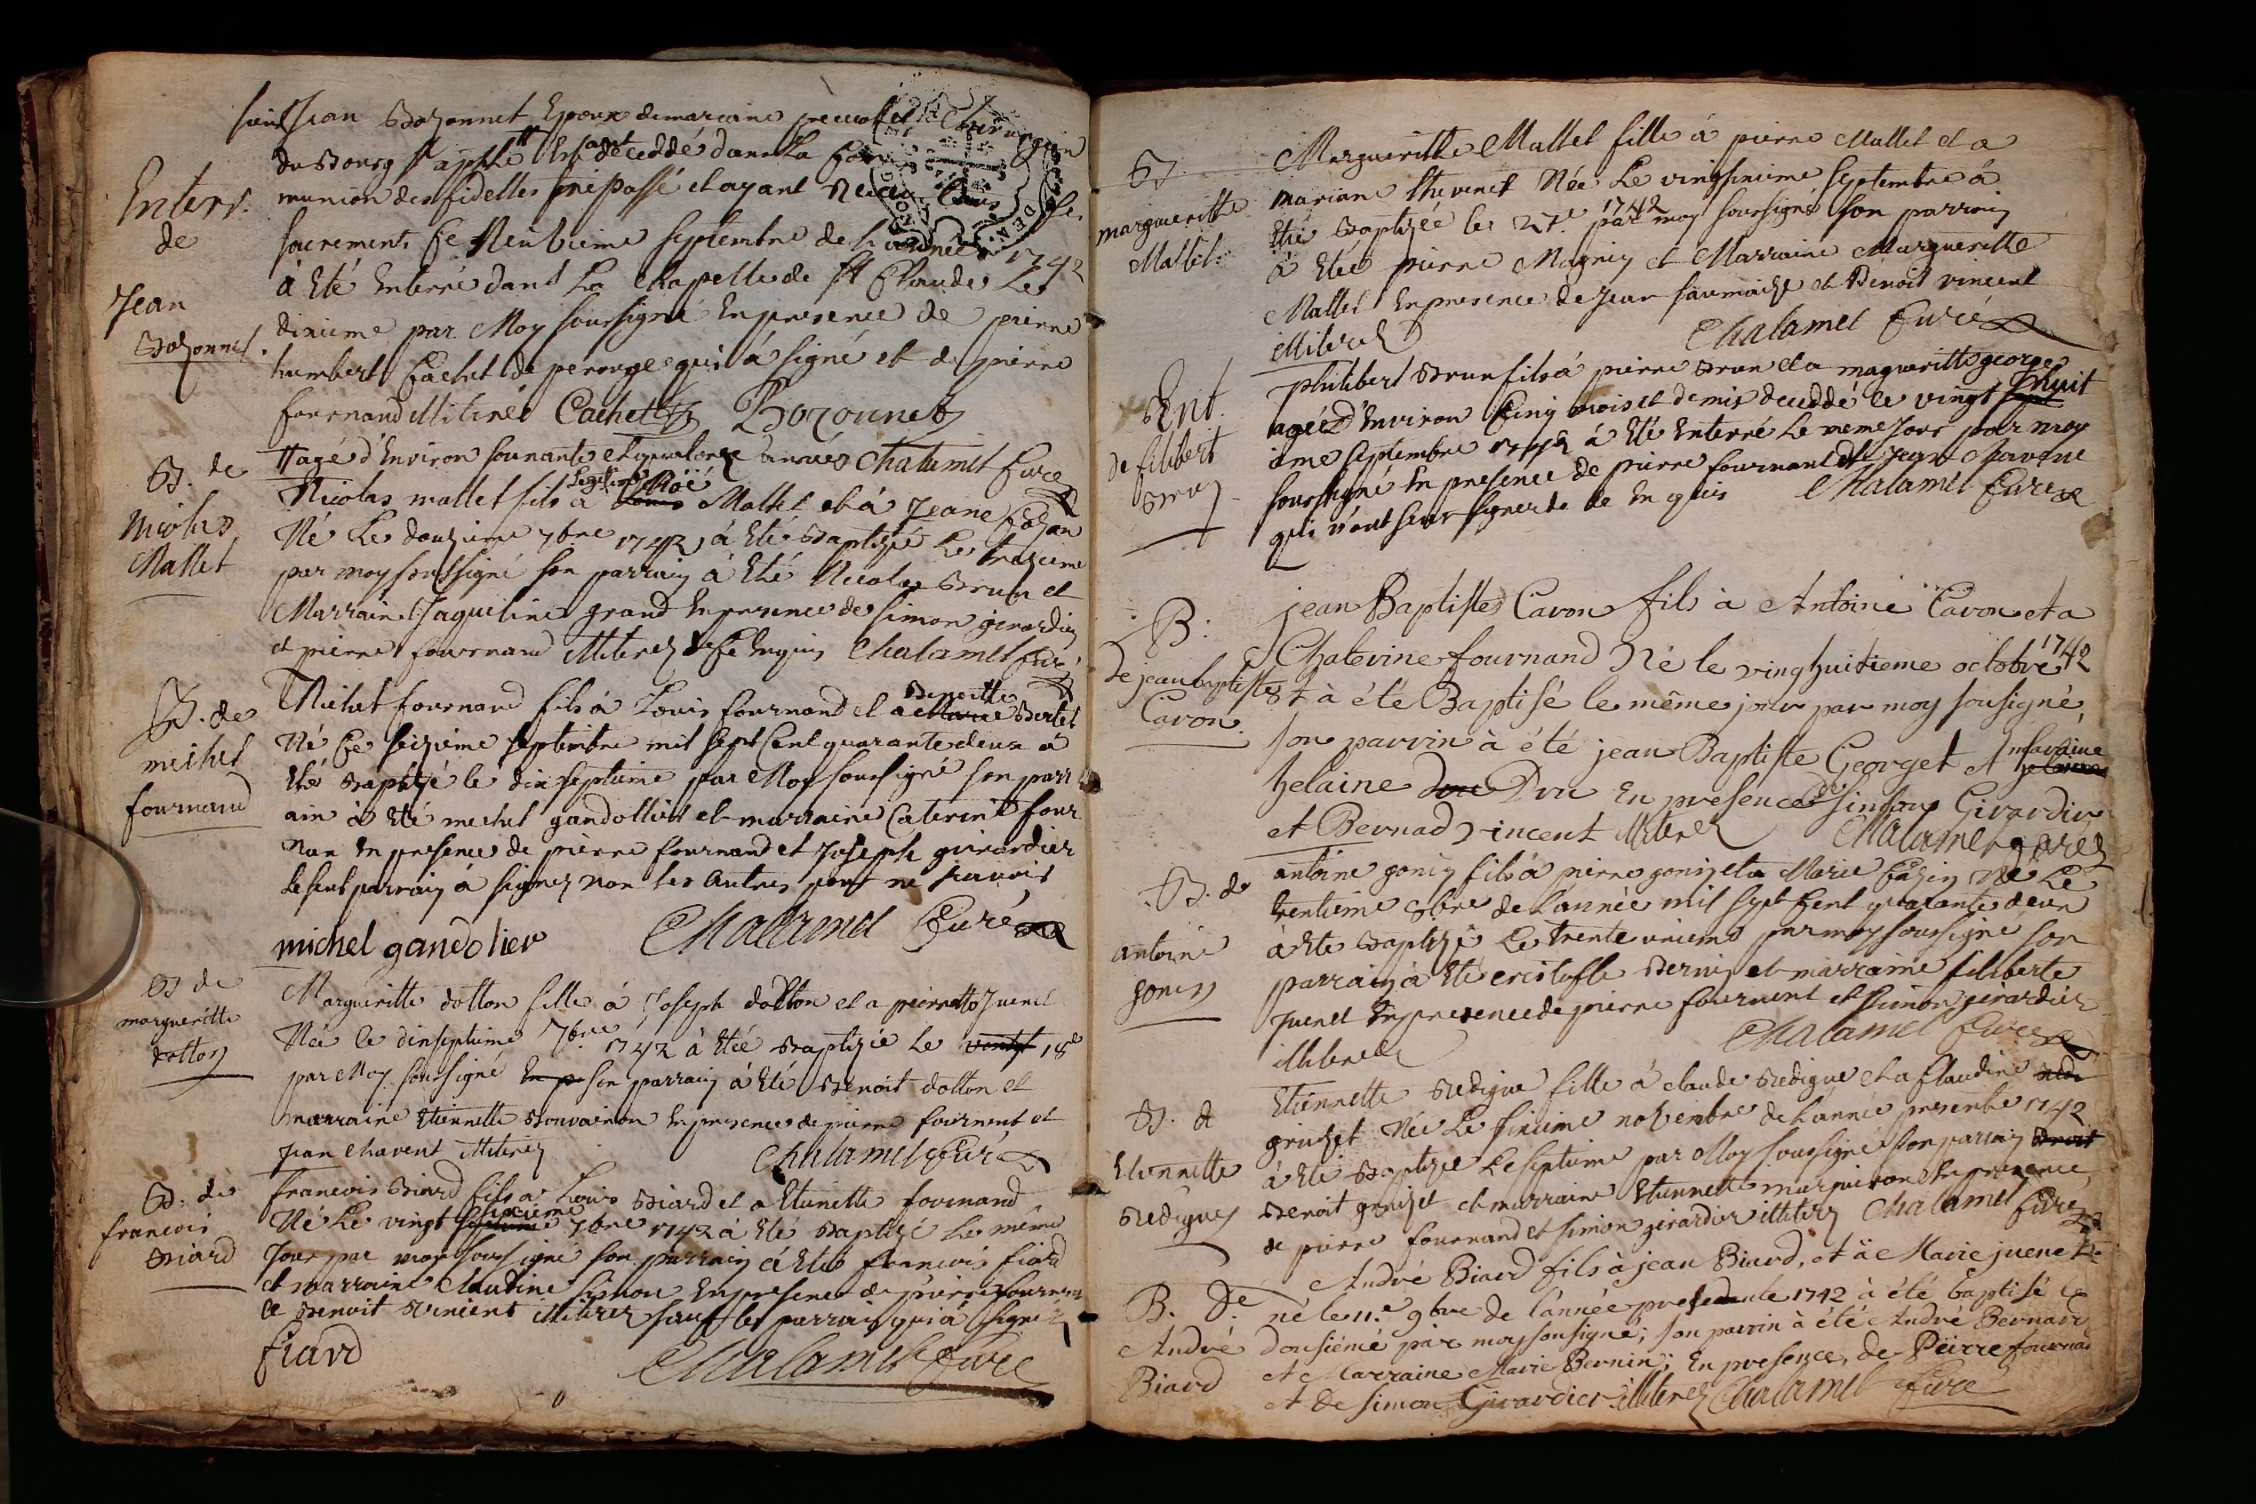 Enterr.
de
Jean
Bozonnet
Jean Bozonnet Epoux de mariane
du Bourg st decedé dans la Com
munion des fidelles trepassé et ayant Receu tous ses
sacrements Ce Neuvieme septembre de l'année 1742
à Eté Enterré dans La Chapelle de st Claude Le
dixieme par Moy soussigné En presence de pierre
humbert Cachet de perouge qui à signé et de pierre
fournand illiterés Cachet Bozonnet
agé d'Environ soixante et quatorze années Chalamel Curé
B. de
Nicolas
Mallet
Nicolas mallet fils à Mallet et à Jeane Cozon
Né Le douzieme 7bre 1742 à Eté Baptizé Le trezieme
par moy soussigné son parrain à Eté Nicolas Brun et
Marraine Jaqueline grand En presence de simon girardier
et pierre fournand illiterez de Ce Enquis Chalamel Curé
B. de
michel
fournand
Michel fournand fils à Louis fournand et a Marie Benoitte Bertet
Né Ce seizieme septembre mil sept Cent quarante deux à
Eté Baptizé le dix septieme par Moy soussigné son parr
ain à Eté michel gandollier et marraine Caterine four
nan En presence de pierre fournand et Joseph guirardier
Le seul parrain à signez non les autres pour ne scavoir
michel gandolier Chalamel Curé
B de
margueritte
dollon
Margueritte dollon fille à Joseph dollon et a pierrette Juenet
Née le dixseptieme 7bre 1742 à Etée Baptizée le ventst 18e
par Moy soussigné En p son parrain à Eté Benoit dollon et
marraine Etiennette En presence de pierre fournent et
Jean Chavent illiterez Chalamel Curé
B. de
francois
Biard
francois Biard fils a Louis Biard et a Etienette fournand
Né Le vingt septieme sixieme 7bre 1742 à Eté Baptizé Le même
Jour par moy soussigné son parrain à Eté francois fiard
et marraine Claudine simon En presence de pierre fournen
et Benoit vincent illiterez sauf le parrain qui à signé
fiard Chalamel Curé
B.
margueritte
Mallet
Margueritte Mallet fille à pierre Mallet et a
mariane thevenet Née Le vingsixieme septembre à
Eté Baptizée le 27e. 1742 par moy soussigné son parrain
à Eté pierre Magnin et Marraine Margueritte
Mallet En presence de Jean saumaize et Benoit vincent
illiterez Chalamel Curé
Ent.
de filibert
Brun
philibert Brun fils à pierre Brun et a magueritte george
agée d'Environ Cinq mois et demis deceddé le vingt sept huit
ieme septembre 1742 à Eté Enterré Le meme Jour par moy
soussigné En presence de pierre fournand et Jean Chavent
qui n'ont sceu signer de ce Enquis Chalamel Curé
B:
De jean baptiste
Cavon.
jean Baptiste Cavon fils à Antoine Cavon et a
Chaterine fournand Né le vinghuitieme octobre 1742
et à été Baptisé le même jour par moy sousigné,
son parrin à été jean Baptiste Georget et maraine
helaine Dru En presence de simon Girardier
et Bernad vincent illiterez Chalamel Curé
B. de
antoine
gonin
antoine gonin fils à pierre gonin et a Marie Cazin Né Le
trentieme 8bre de L'année mil sept Cent quarante deux
à Ete Baptizé Le trente unieme par moy soussigné son
parrain à Eté cristofle Bernin et marraine filiberte
Juenet En presence de pierre fournent et simon girardier
illiterez Chalamel Curé
B. d
Etiennette
Bredigue
Etiennette Bredigue fille à claude Bredigue et a Claudine
grinzet Née Le sixieme novembre de L'année presente 1742
à Eté Baptizée Le septieme par Moy soussigné son parrain
Benoit grinzet et marraine Etiennette En presence
de pierre fournand et simon girardier illiterez Chalamel Curé
B. De
André
Biard
André Biard fils à jean Biard, et à Marie juenet
né le 11.e 9bre de l'année presente 1742 à été Baptisé le
dousiéme par moy sousigné; son parrin à été André Bernard
et Marraine Marie Bernin; En presence, de Peirre fournad
et de simon Girardier illiterez Chalamel Curé